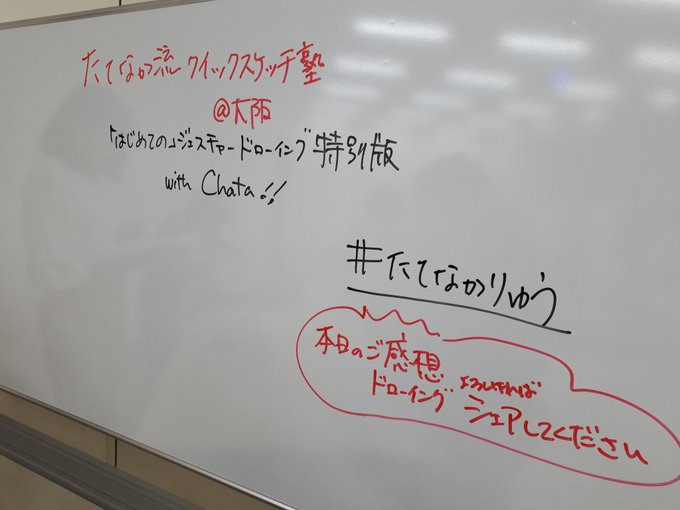 たてなか流クイックスケッチ塾
@大阪
「はじめての」ジェスチャードローイング特別版
with Chata!!
#たてなかりゅう
本日のご感想
ドローイング よろしければ
シェアしてください